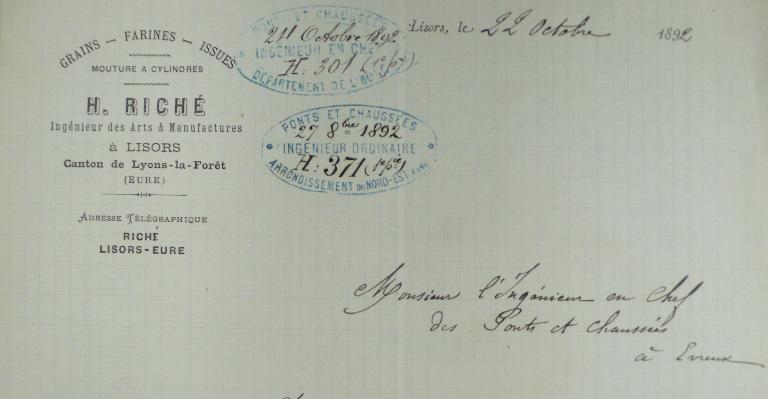 GRAINS - FARINES - ISSUES
MOUTURE A CYLINDRES
H. RICHÉ
Ingénieur des Arts & Manufactures
à LISORS
Canton de Lyons-la-Forêt
(EURE)
ADRESSE TÉLÉGRAPHIQUE
RICHÉ
LISORS-EURE
PONTS ET CHAUSSÉES
24 Octobre 1892
INGÉNIEUR EN CHEF
H: 301 (1e pce)
DÉPARTEMENT DE L'EURE
PONTS ET CHAUSSÉES
27 8bre 1892
INGÉNIEUR ORDINAIRE
H: 371 (1e pce)
ARRONDISSEMENT DU NORD-EST EURE
Lisors, le 22 Octobre 1892
Monsieur l'Ingénieur en Chef
des Ponts et Chaussées
à Evreux